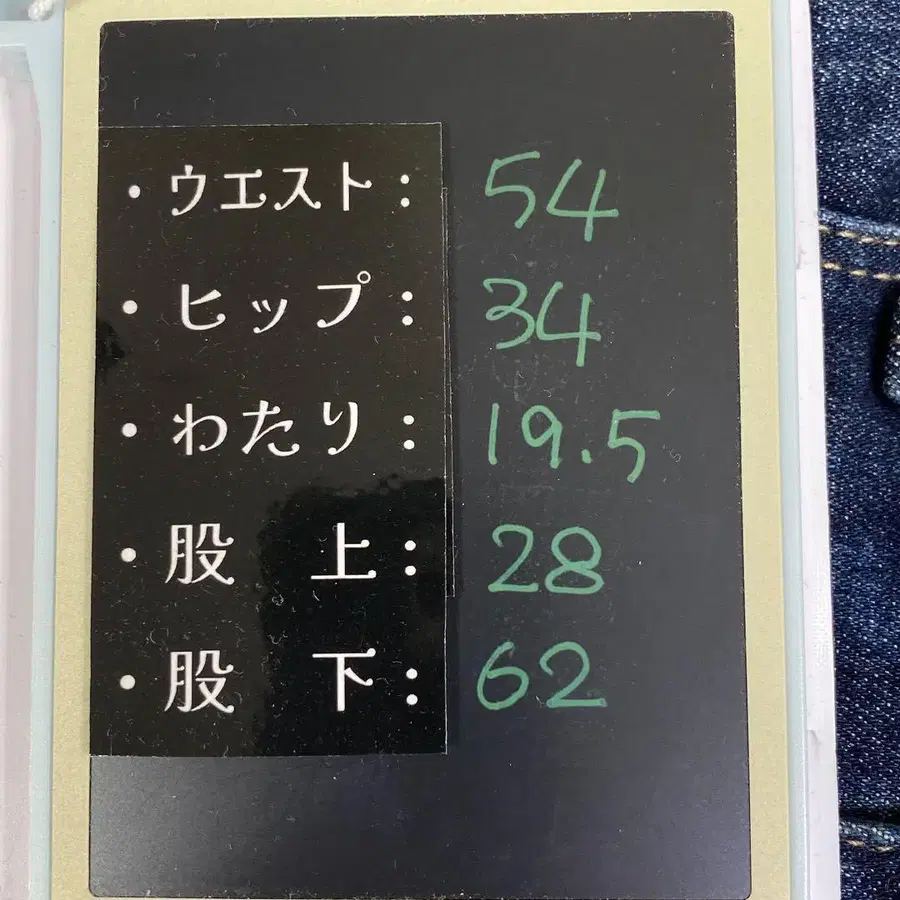 ・ウエスト: 54
・ヒップ: 34
・わたり: 19.5
・股　上: 28
・股　下: 62